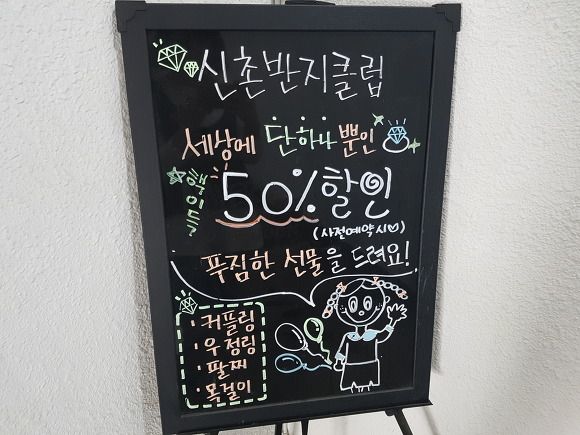 신촌반지클럽
세상에 단하나뿐인
50% 할인
(사전예약시♡)
푸짐한 선물을 드려요!
· 커플링
· 우정링
· 팔찌
· 목걸이